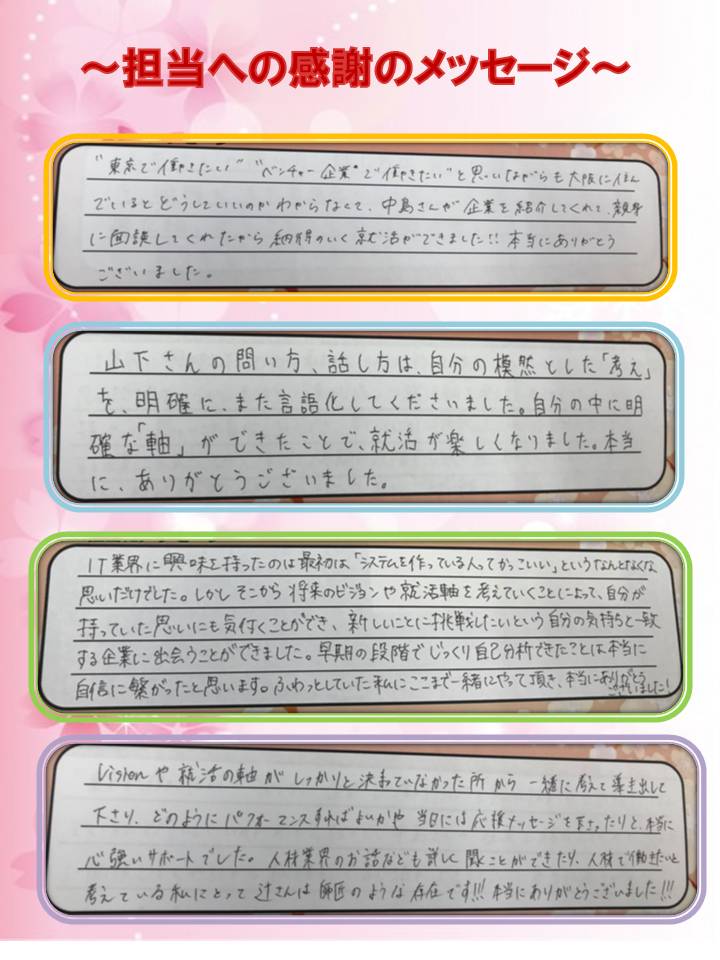 ～担当への感謝のメッセージ～
"東京で働きたい" "ベンチャー企業"で働きたい"と思いながらも大阪に住ん
でいるとどうしていいのかわからなくて、中島さんが企業を紹介してくれて、親身
に面談してくれたから納得のいく就活ができました!! 本当にありがとう
ございました。
山下さんの問い方、話し方は、自分の模然とした「考え」
を、明確に、また言語化してくださいました。自分の中に明
確な「軸」ができたことで、就活が楽しくなりました。本当
に、ありがとうございました。
IT業界に興味を持ったのは最初は「システムを作っている人ってかっこいい」というなんとなくな
思いだけでした。しかしそこから将来のビジョンや就活軸を考えていくことによって、自分が
持っていた思いにも気付くことができ、新しいことに挑戦したいという自分の気持ちと一致
する企業に出会うことができました。早期の段階でじっくり自己分析できたことは本当に
自信に繋がったと思います。ふわっとしていた私にここまで一緒にやって頂き、本当にありがとう
ございました!
Visionや就活の軸がしっかりと決まっていなかった所から一緒に考えて導き出して
下さり、どのようにパフォーマンスすればよいかや当日には応援メッセージを下さったりと、本当に
心強いサポートでした。人材業界のお話なども詳しく聞くことができたり、人材で働きたいと
考えている私にとって辻さんは師匠のような存在です!!! 本当にありがとうございました!!!